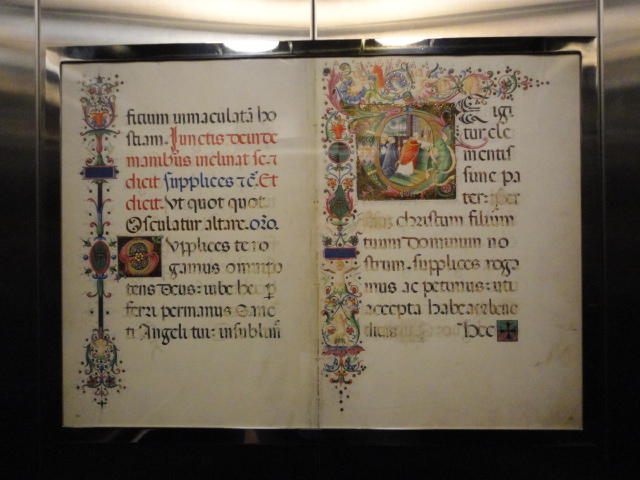 ficium immaculatā ho
stiam. Iunctis deinde
manibus inclinat se. &
dicit supplices &c̄. Et
dicit. Ut quot quot
Osculatur altare. oro.
Supplices te ro
gamus omnipo
tens Deus: iube hec p̄
ferri per manus Sanc
ti Angeli tui: in sublim̄
Te igi
tur cle
mentis
sime pa
ter: per
christum filium
tuum Dominum no
strum. supplices roga
mus ac petimus: uti
accepta habeas & bene
dicas Hec